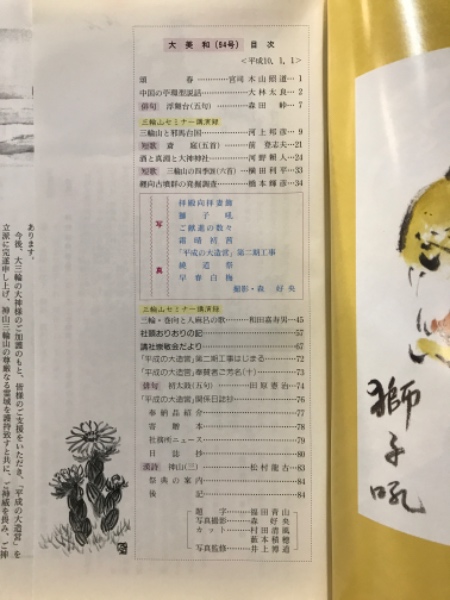 大美和(94号) 目次
<平成10.1.1>
頌春…………宮司 木山照道…1
中国の卵生型説話…………大林太良…2
俳句 浮舞台(五句)…………森田峠…7
三輪山セミナー講演録
三輪山と邪馬台国…………河上邦彦…9
短歌 斎庭(五首)…………前登志夫…21
酒と真澗と大神神社…………河野頼人…24
短歌 三輪山の四季派(六首)…横田利平…33
纒向古墳群の発掘調査…………橋本輝彦…34
写真
拝殿向拝妻飾
獅子吼
ご献進の数々
「平成の大造営」第二期工事
繞道祭
早春白梅
撮影・森好央
三輪山セミナー講演録
三輪・巻向と人麻呂の歌…………和田嘉寿男…45
社頭おりおりの記…………57
講社崇敬会だより…………67
「平成の大造営」第二期工事はじまる…………72
「平成の大造営」奉賛者ご芳名(十)…………73
俳句 初太鼓(五句)…………田原憲治…74
「平成の大造営」関係日誌抄…………76
奉納品紹介…………77
寄贈本…………78
社務所ニュース…………79
日誌抄…………80
漢詩 神山(三)…………松村龍古…83
祭典の案内…………84
後記…………84
題字……福田青山
写真撮影……森好央
カット……村田清風
藪本積穂
写真監修……井上博道
あります。
今後、大三輪の大神様のご加護のもと、皆様のご支援をいただき、「平成の大造営」を
立派に完遂申し上げ、神山三輪山の尊厳なる霊域を護持致すと共に、ご神威を畏み、ご神
獅子吼